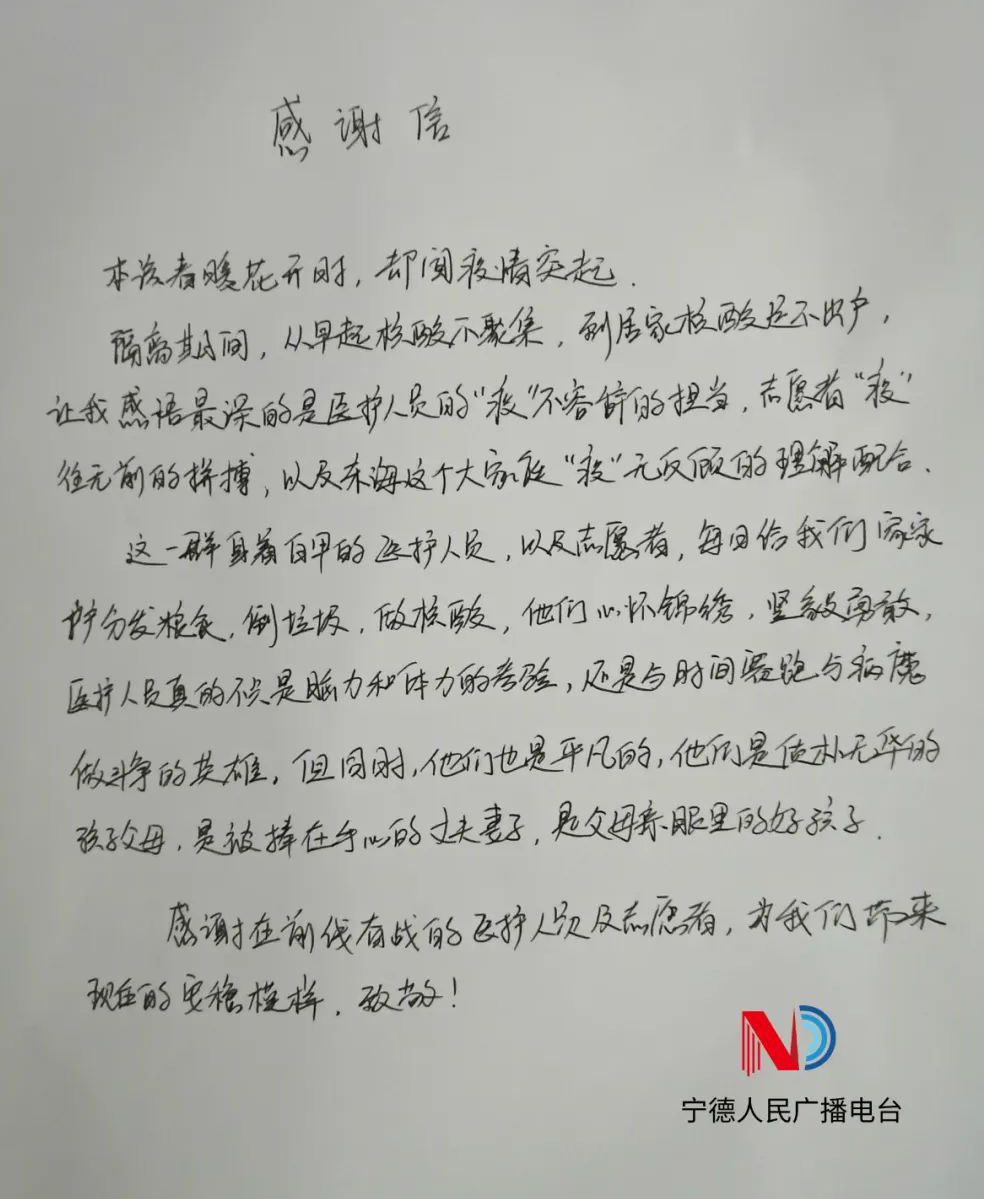 感谢信
本该春暖花开时，却闻疫情突起.
隔离期间，从早起核酸不聚集，到居家核酸足不出户，
让我感语最深的是医护人员的"疫"不容辞的担当，志愿者"疫"
往无前的拼搏，以及东海这个大家庭"疫"无反顾的理解配合.
这一群身着白甲的医护人员，以及志愿者，每日给我们家家
户户分发粮食，倒垃圾，做核酸，他们心怀锦绣，坚毅勇敢，
医护人员真的不只是脑力和体力的考验，还是与时间赛跑与病魔
做斗争的英雄，但同时，他们也是平凡的，他们是质朴无华的
孩子父母，是被捧在手心的丈夫妻子，是父母亲眼里的好孩子.
感谢在前线奋战的医护人员及志愿者，为我们带来
现在的安稳模样，致敬！
宁德人民广播电台